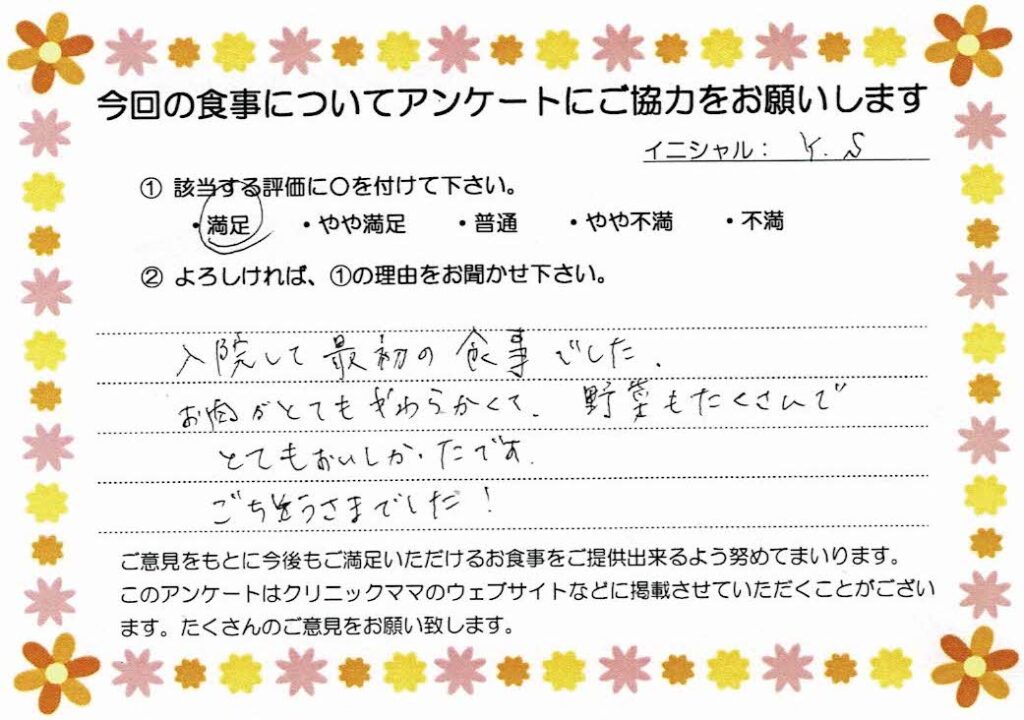 今回の食事についてアンケートにご協力をお願いします
イニシャル： Y. S
① 該当する評価に○を付けて下さい。
・満足 ・やや満足 ・普通 ・やや不満 ・不満
② よろしければ、①の理由をお聞かせ下さい。
入院して最初の食事でした.
お肉がとてもやわらかくて. 野菜もたくさんで
とてもおいしかったです.
ごちそうさまでした！
ご意見をもとに今後もご満足いただけるお食事をご提供出来るよう努めてまいります。
このアンケートはクリニックママのウェブサイトなどに掲載させていただくことがござい
ます。たくさんのご意見をお願い致します。